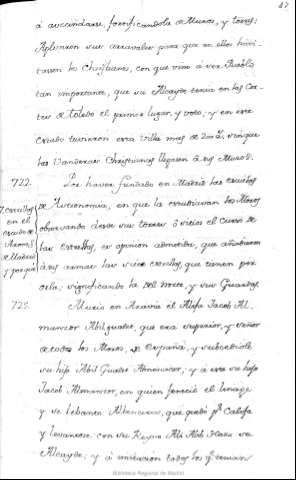 47
á avecindarse, fortificandola de Muros, y torres;
Aplicaron sus arravales para que en ellos havi-
tasen los Christianos, con que vino á ser Pueblo
tan importante, que su Alcayde tenia en las Cor-
tes de toledo el primer lugar, y voto; y en este
estado tuvieron esta Villa mas de años, sin que
las Vanderas Christianas llegasen á sus Muros.
722. Por haver fundado en Madrid las escuelas
de Astronomía, en que la estudiavan los Moros
observando desde sus torres el Curso de
las estrellas, es opinion admitida, que añadieron
á sus armas las siete estrellas, que tienen por
orla; significando la del norte, y sus Guardas.
7. estrellas
en el
escudo de
Armas
de Madrid
y porque
725. Murió en Aravia el Jacob Al-
manzor que era superior, y señor
de todos los Moros, de España, y subcediole
su hijo Abil Gualit Almanzor; y á este su hijo
Jacob Almanzor, en quien feneció el linage
y se lebantó que quedó pr. Califa
y levantose con su Reyno Ali su
Alcayde; y á imitación todos los qe. tenian
Biblioteca Regional de Madrid